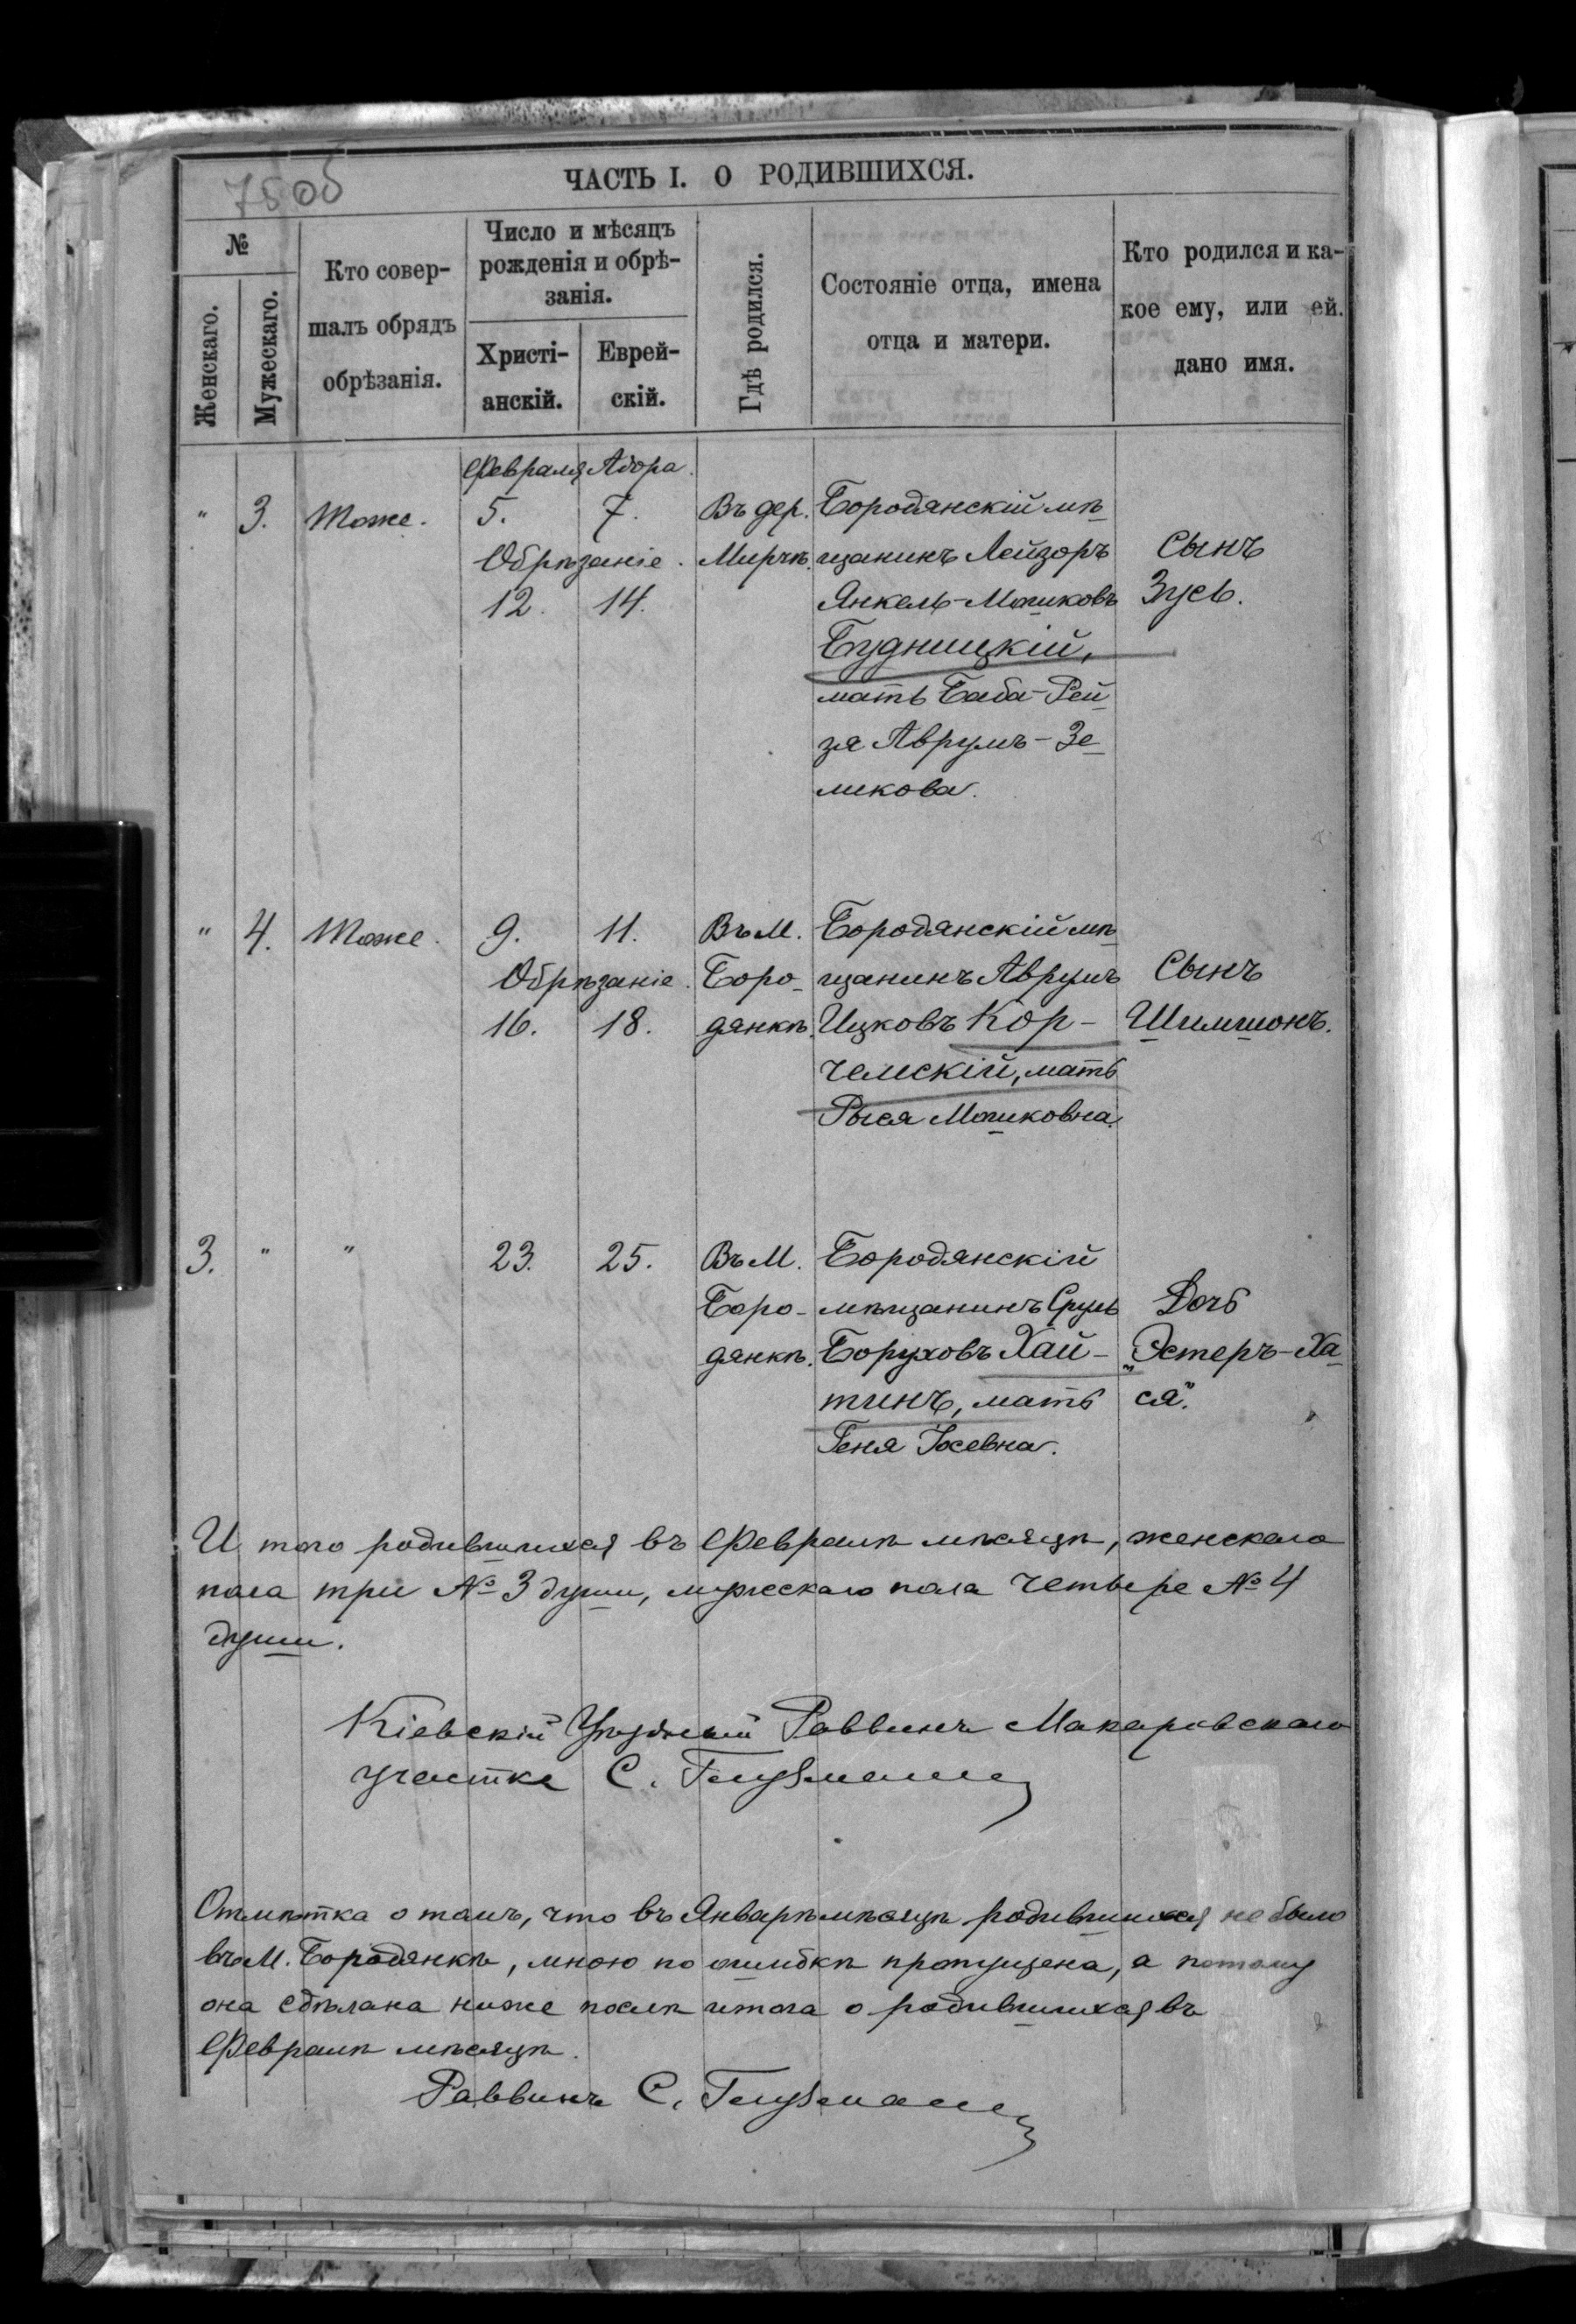 7505
ЧАСТЬ I. О РОДИВШИХСЯ.
№
Женскаго.
Мужескаго.
Кто совер-
шалъ обрядъ
обрѣзанія.
Число и мѣсяцъ
рожденія и обрѣ-
занія.
Христі-
анскій.
Еврей-
скій.
Гдѣ родился.
Состояніе отца, имена
отца и матери.
Кто родился и ка-
кое ему, или ей.
дано имя.
Февраля Адора.
" 3. Тоже. 5. 7. Въ дер. Бородянскій мѣ
Обрѣзаніе. Мирчѣ. щанинъ Лейзоръ Сынъ
12. 14. Янкель-Мошковъ Зусь.
Будницкій,
мать Баба-Рей
зя Аврумъ-Зе
ликова.
" 4. Тоже. 9. 11. Въ М. Бородянскій мѣ
Обрѣзаніе. Боро- щанинъ Аврумъ Сынъ
16. 18. дянкѣ. Ицковъ Кор- Шимшонъ.
чемскій, мать
Рыся Мошковна.
3. " " 23. 25. Въ М. Бородянскій
Боро- мѣщанинъ Сруль Дочь
дянкѣ. Боруховъ Хай- „Эстеръ-Ха
тинъ, мать ся".
Геня Іосевна.
И того родившихся въ Февралѣ мѣсяцѣ, женскаго
пола три № 3 души, мужескаго пола четыре № 4
души.
Кіевскій Уѣздный Раввинъ Макаровскаго
участка С. Глузманъ
Отмѣтка о томъ, что въ Январѣ мѣсяцѣ родившихся не было
въ М. Бородянкѣ, мною по ошибкѣ пропущена, а потому
она сдѣлана ниже послѣ итога о родившихся въ
Февралѣ мѣсяцѣ.
Раввинъ С. Глузманъ